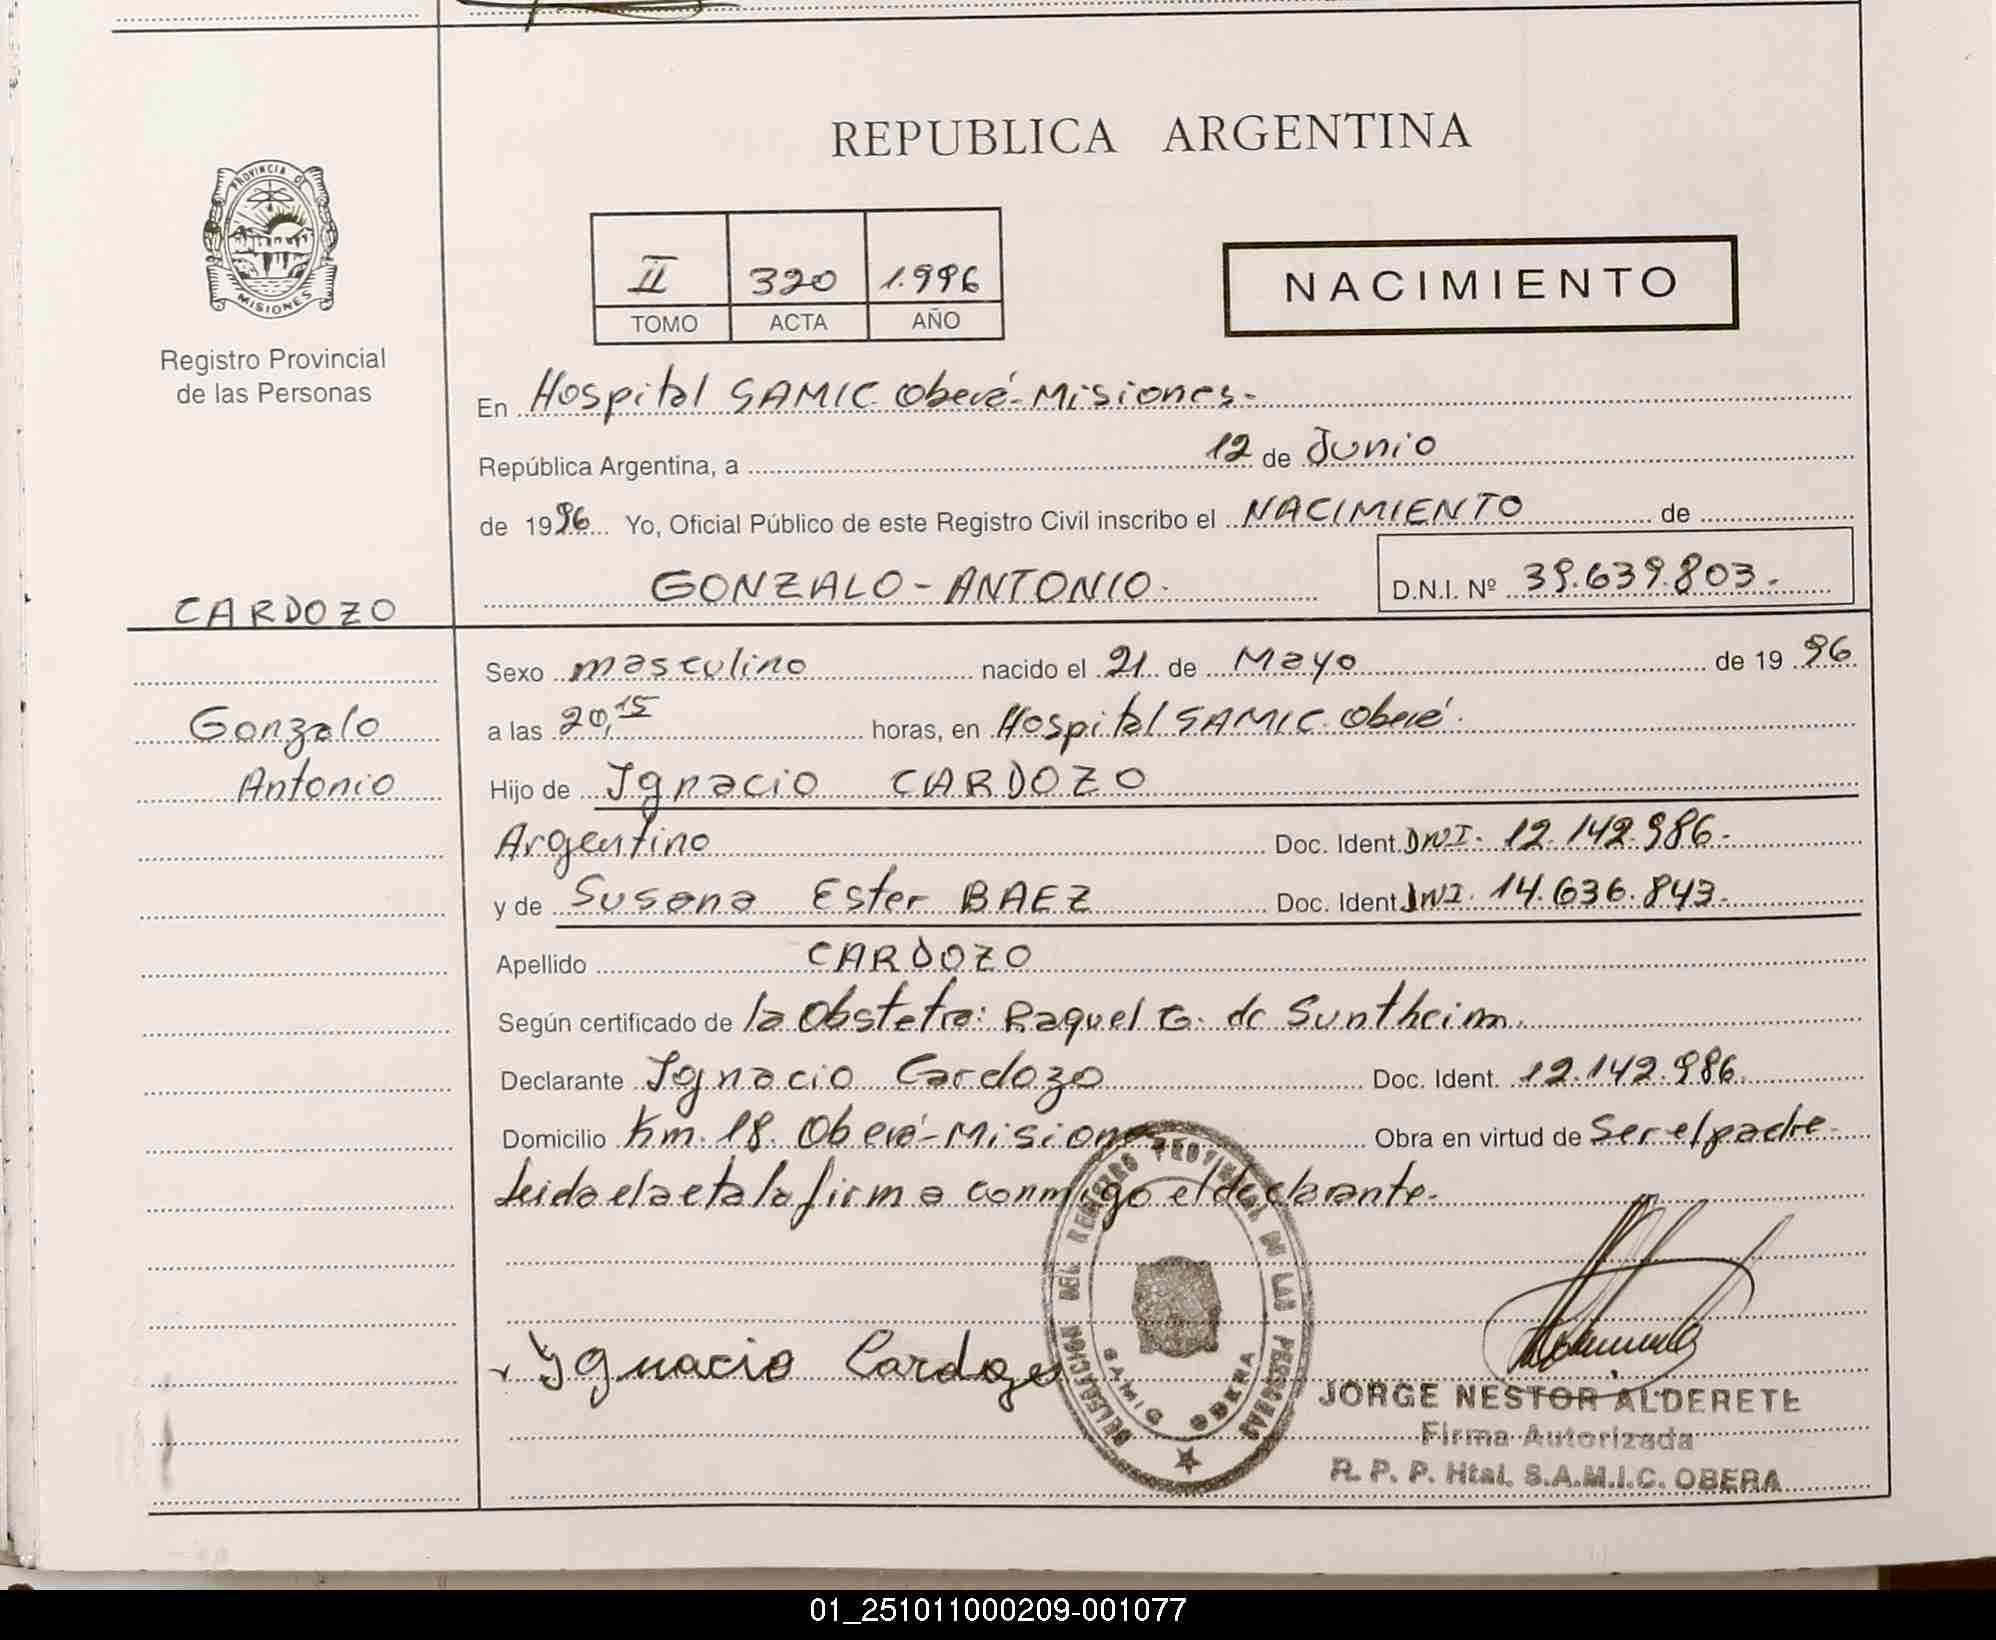 REPUBLICA ARGENTINA
PROVINCIA DE
MISIONES
Registro Provincial
de las Personas
II 320 1.996
TOMO ACTA AÑO
NACIMIENTO
En Hospital SAMIC Oberá-Misiones-
República Argentina, a 12 de Junio
de 1996 Yo, Oficial Público de este Registro Civil inscribo el NACIMIENTO de
GONZALO-ANTONIO. D.N.I. Nº 39.639.803.-
CARDOZO
Gonzalo
Antonio
Sexo masculino nacido el 21 de Mayo de 1996
a las 20,15 horas, en Hospital SAMIC. Oberá.
Hijo de Ignacio CARDOZO
Argentino Doc. Ident. DNI. 12.142.986.-
y de Susana Ester BAEZ Doc. Ident. DNI. 14.636.843.-
Apellido CARDOZO
Según certificado de la Obstetra: Raquel G. de Suntheim.
Declarante Ignacio Cardozo Doc. Ident. 12.142.986.
Domicilio Km. 18. Oberá-Misiones Obra en virtud de Ser el padre-
Leida el acta la firma conmigo el declarante.-
Ignacio Cardozo
DELEGACION DEL REGISTRO PROVINCIAL DE LAS PERSONAS
SAMIC OBERA
JORGE NESTOR ALDERETE
Firma Autorizada
R. P. P. Htal. S.A.M.I.C. OBERA
01_251011000209-001077